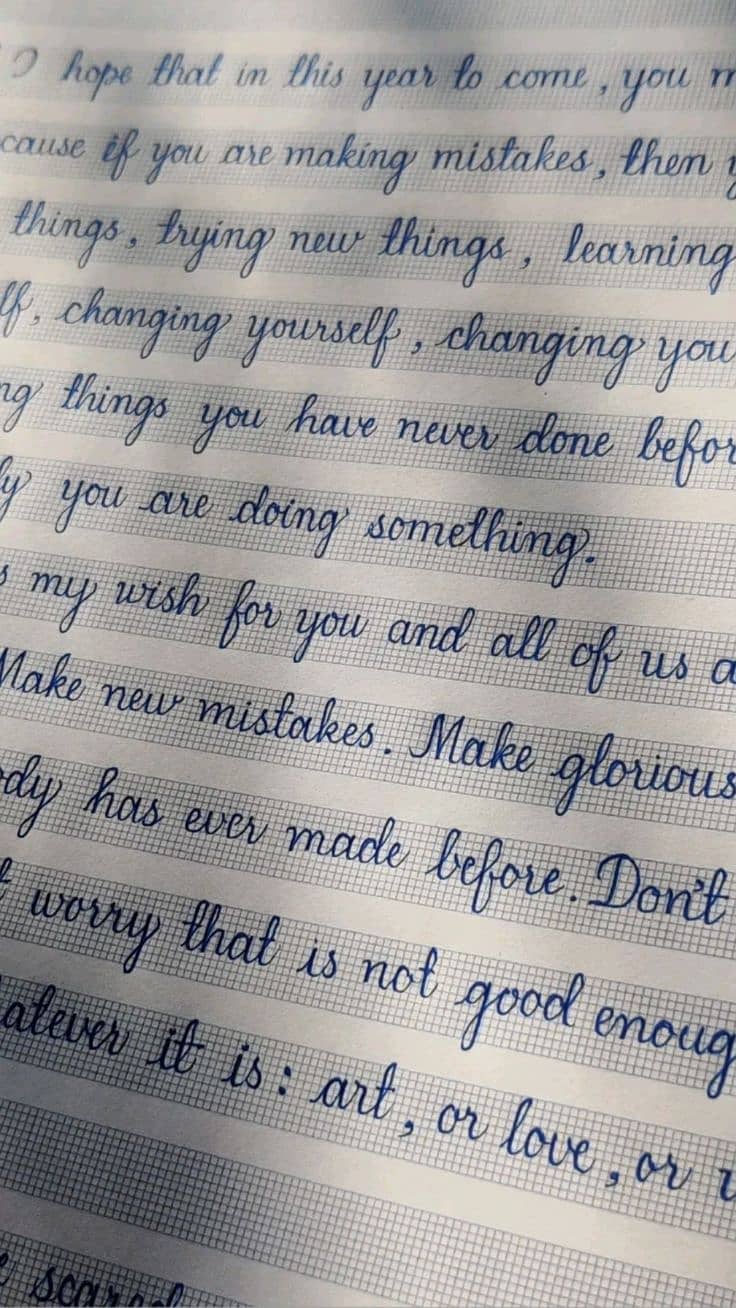 I hope that in this year to come, you m
cause if you are making mistakes, then y
things, trying new things, learning
lf, changing yourself, changing you
ng things you have never done befor
ly you are doing something.
s my wish for you and all of us a
Make new mistakes. Make glorious
ody has ever made before. Don't
t worry that is not good enoug
atever it is: art, or love, or
e scared